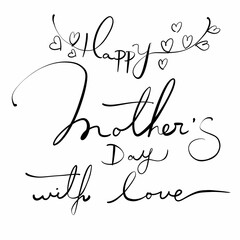 Happy
Mother's
Day
with love